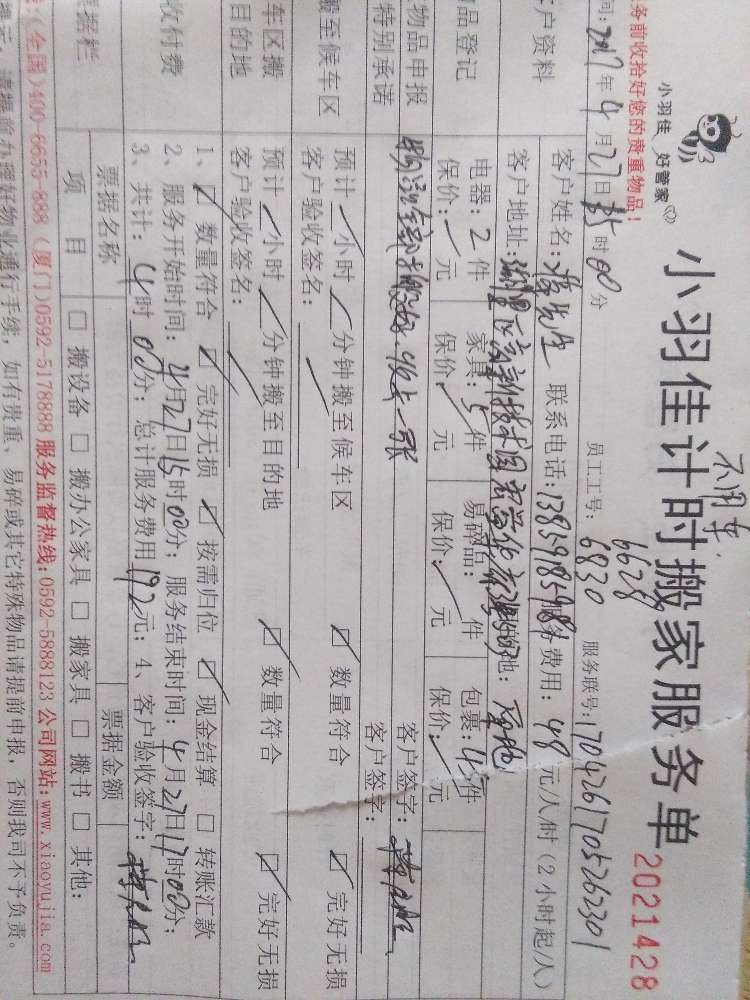 小羽佳 好管家
小羽佳计时搬家服务单 2021428
不用车
6628
务前收拾好您的贵重物品!
员工工号: 6830 服务联号: 1704261705262301
间: 2017年4月27日 15时00分
户资料
客户姓名: 蒋先生 联系电话: 13859185981 服务费用: 48元/人/时(2小时起/人)
客户地址: 湖里区高新技术园
品登记
电器: 2件 家具: 5件 易碎品: / 件 包裹: 4件
保价: / 元 保价: / 元 保价: / 元 保价: / 元
物品申报
特别承诺
客户签字:
客户签字:
搬至候车区
预计 / 小时 / 分钟搬至候车区 ☑ 数量符合 ☑ 完好无损
客户验收签名:
车区搬
目的地
预计 / 小时 / 分钟搬至目的地 ☑ 数量符合 ☑ 完好无损
客户验收签名:
收付费
1、☑ 数量符合 ☑ 完好无损 ☑ 按需归位 ☑ 现金结算 □ 转账汇款
2、服务开始时间: 4月27日15时00分; 服务结束时间: 4月27日17时00分;
3、共计: 4时00分; 总计服务费用192元; 4、客户验收签字:
票据栏
票据名称 票据金额
项 目 □ 搬设备 □ 搬办公家具 □ 搬家具 □ 搬书 □ 其他:
(全国)400-6655-888 (厦门)0592-5178888 服务监督热线:0592-5888123 公司网站:www.xiaoyujia.com
提示: 请提前办理好物业通行手续; 如有贵重、易碎或其它特殊物品请提前申报, 否则我司不予负责。